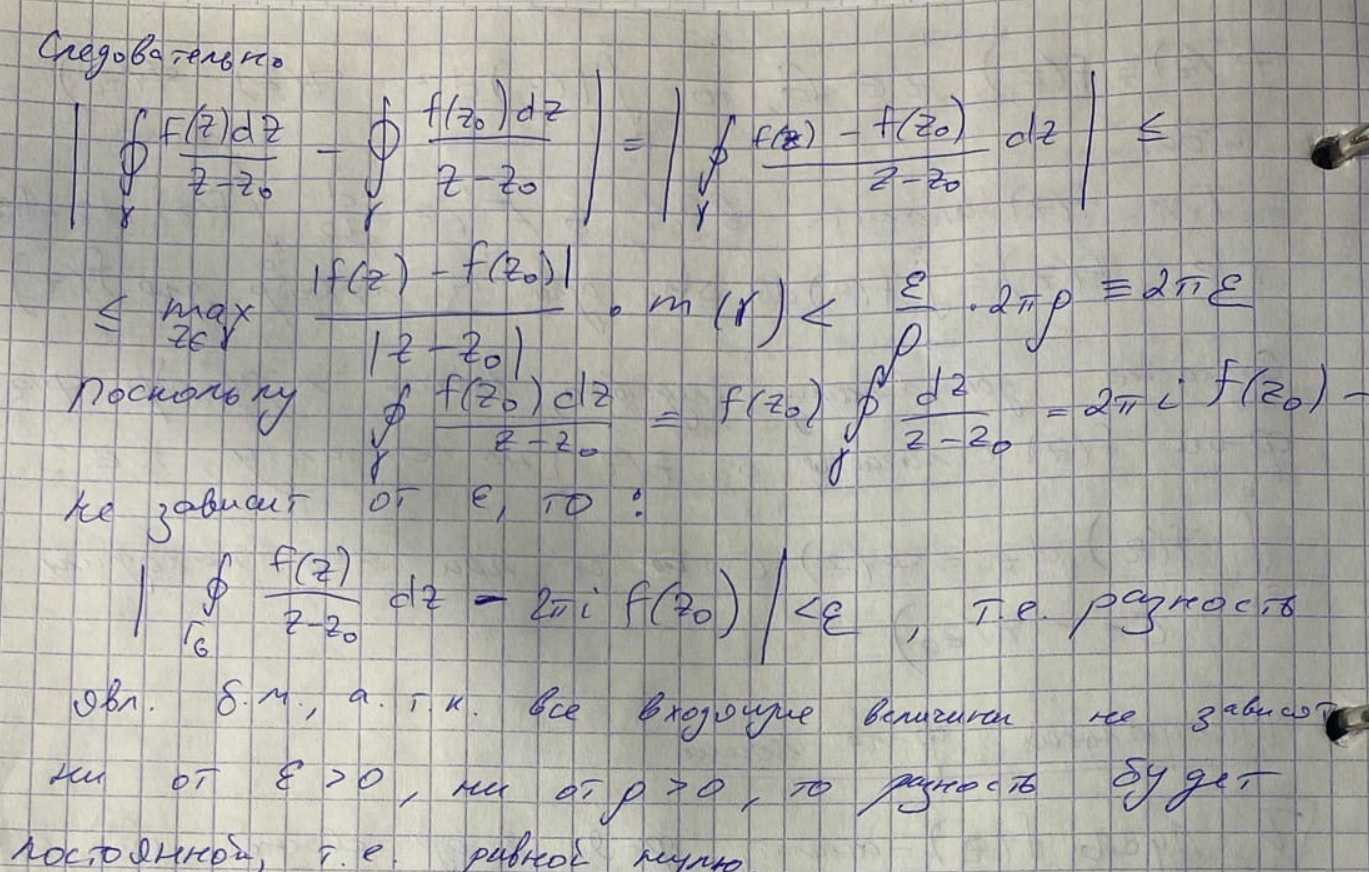 Следовательно
| ∮_γ f(z)dz / (z-z₀) - ∮_γ f(z₀)dz / (z-z₀) | = | ∮_γ (f(z) - f(z₀)) / (z-z₀) dz | ≤
≤ max_{z∈γ} |f(z) - f(z₀)| / |z-z₀| · m(γ) < ε/ρ · 2πρ = 2πε
Поскольку ∮_γ f(z₀)dz / (z-z₀) = f(z₀) ∮_γ dz / (z-z₀) = 2πi f(z₀) -
не зависит от ε, то :
| ∮_{Γ_G} f(z) / (z-z₀) dz - 2πi f(z₀) | < ε , т.е. разность
явл. б.м., а т.к. все входящие величины не зависят
ни от ε > 0, ни от ρ > 0, то разность будет
постоянной, т.е. равной нулю